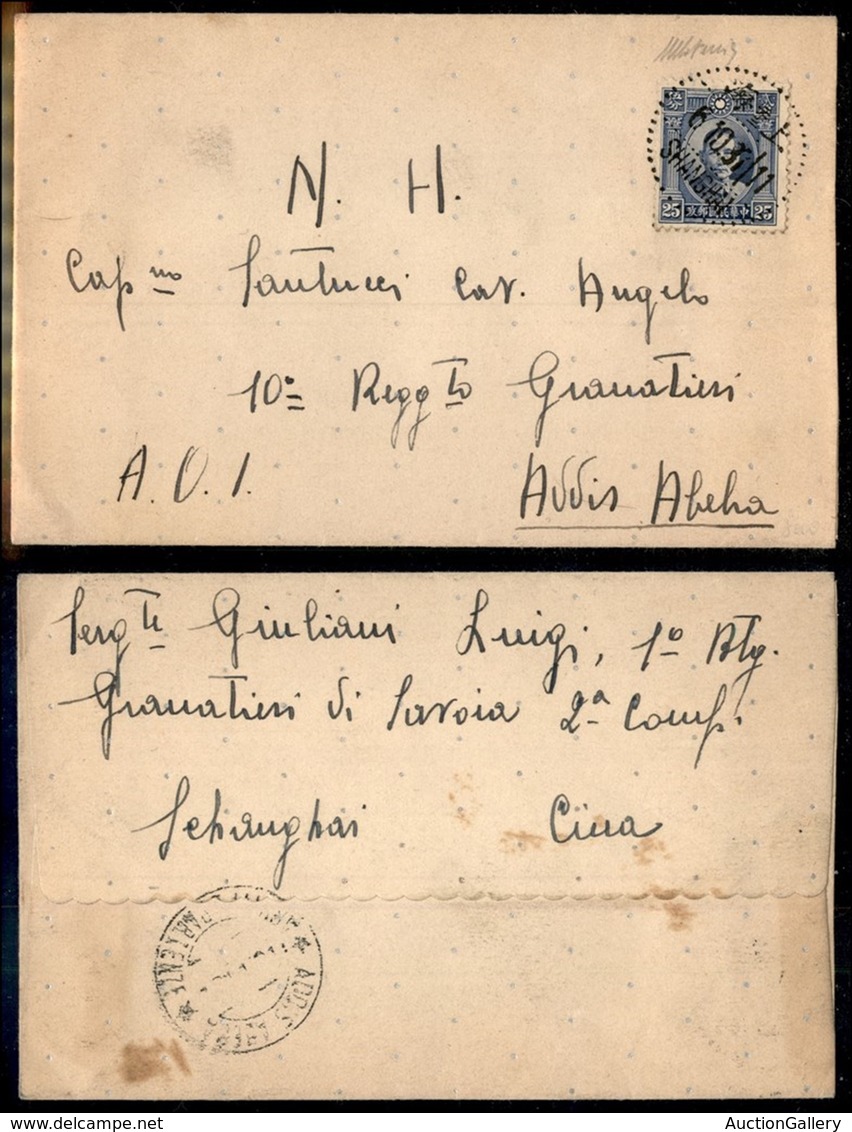 N. H.
Cap no Santucci Cav. Angelo
10° Regg to Granatieri
A. O. I.
Addis Abeba
SHANGHAI
25 25
Serg te Giuliani Luigi, 1° Btg.
Granatieri di Savoia 2a Comp.
Schanghai Cina
ADDIS
DELCAMPE.NET
AuctionGallery